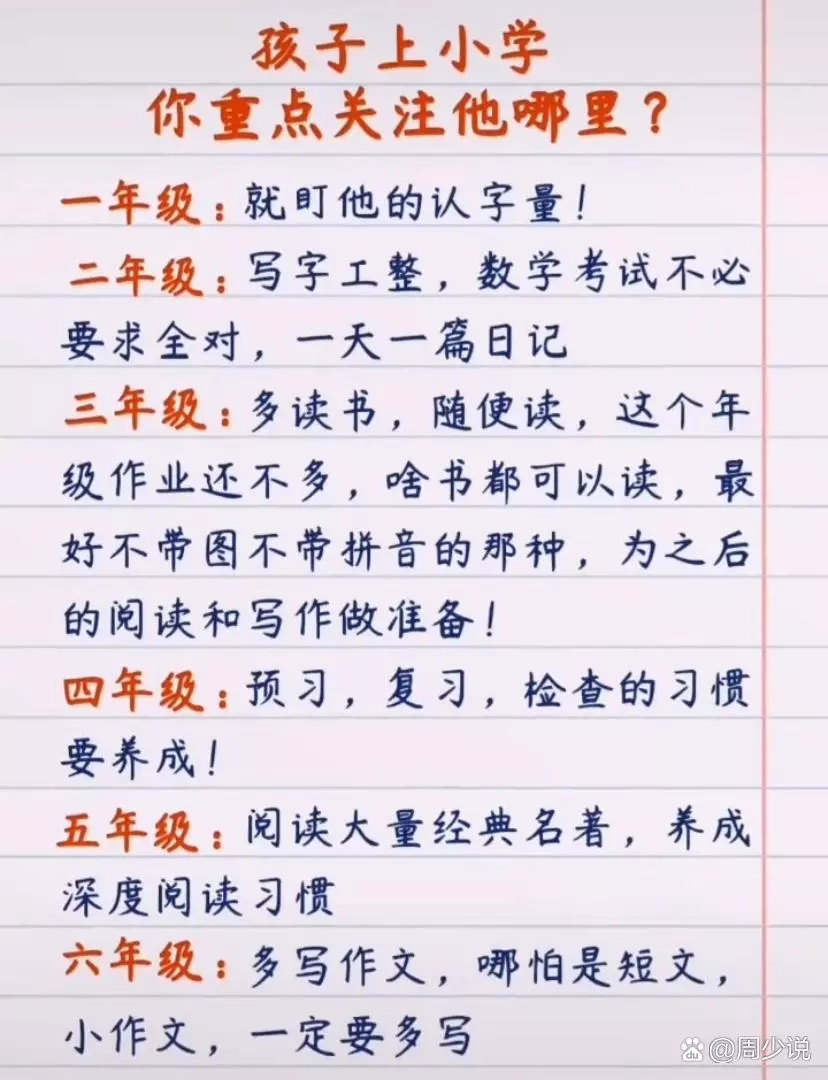 孩子上小学
你重点关注他哪里？
一年级：就盯他的认字量！
二年级：写字工整，数学考试不必
要求全对，一天一篇日记
三年级：多读书，随便读，这个年
级作业还不多，啥书都可以读，最
好不带图不带拼音的那种，为之后
的阅读和写作做准备！
四年级：预习，复习，检查的习惯
要养成！
五年级：阅读大量经典名著，养成
深度阅读习惯
六年级：多写作文，哪怕是短文，
小作文，一定要多写
du @周少说